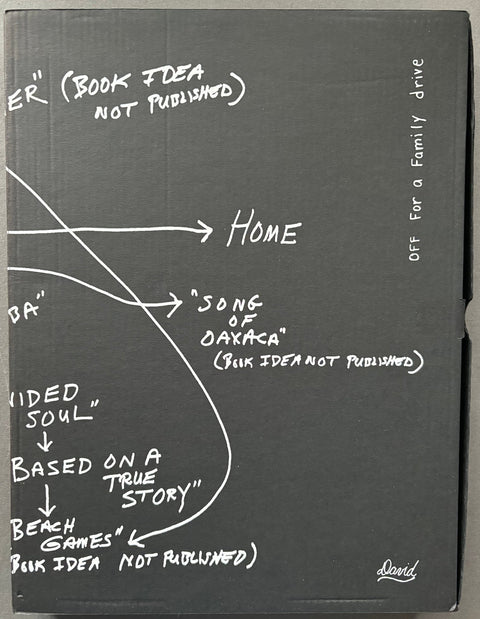 ER" (BOOK IDEA
NOT PUBLISHED)
HOME
BA"
"SONG
OF
OAXACA"
(BOOK IDEA NOT PUBLISHED)
VIDED
SOUL"
BASED ON A
TRUE
STORY"
BEACH
GAMES"
(BOOK IDEA NOT PUBLISHED)
OFF For a Family drive
David